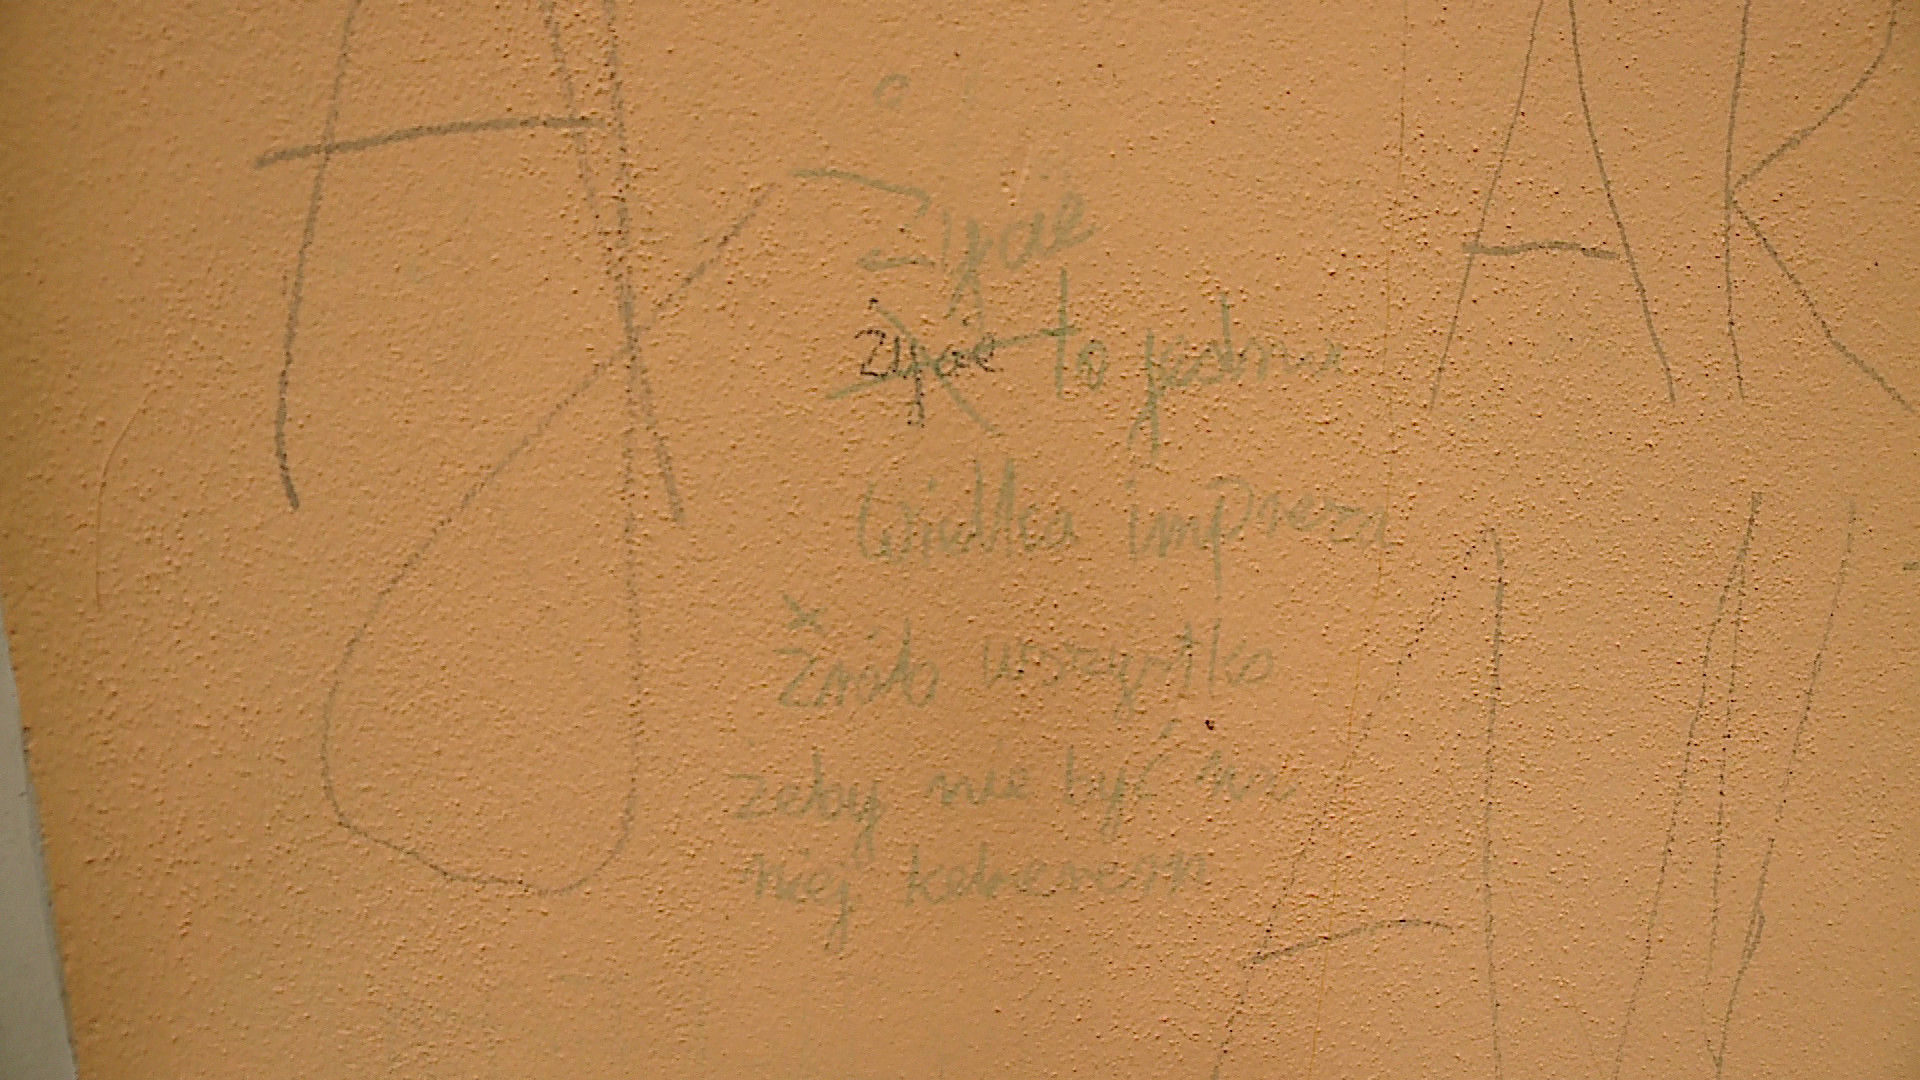 Życie
Życie to jedna
wielka impreza
Zrób wszystko
żeby nie być na
niej kelnerem
A
AR